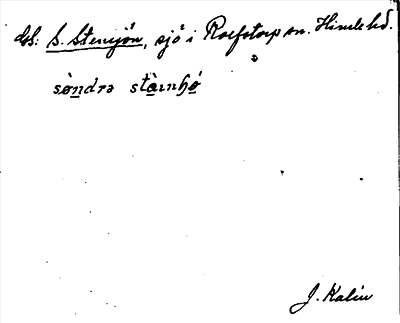 Gs: S. Stensjön, sjö i Rolfstorp sn. Himle hd.
sø̀ndrə stàinɧǿ
J. Kalin